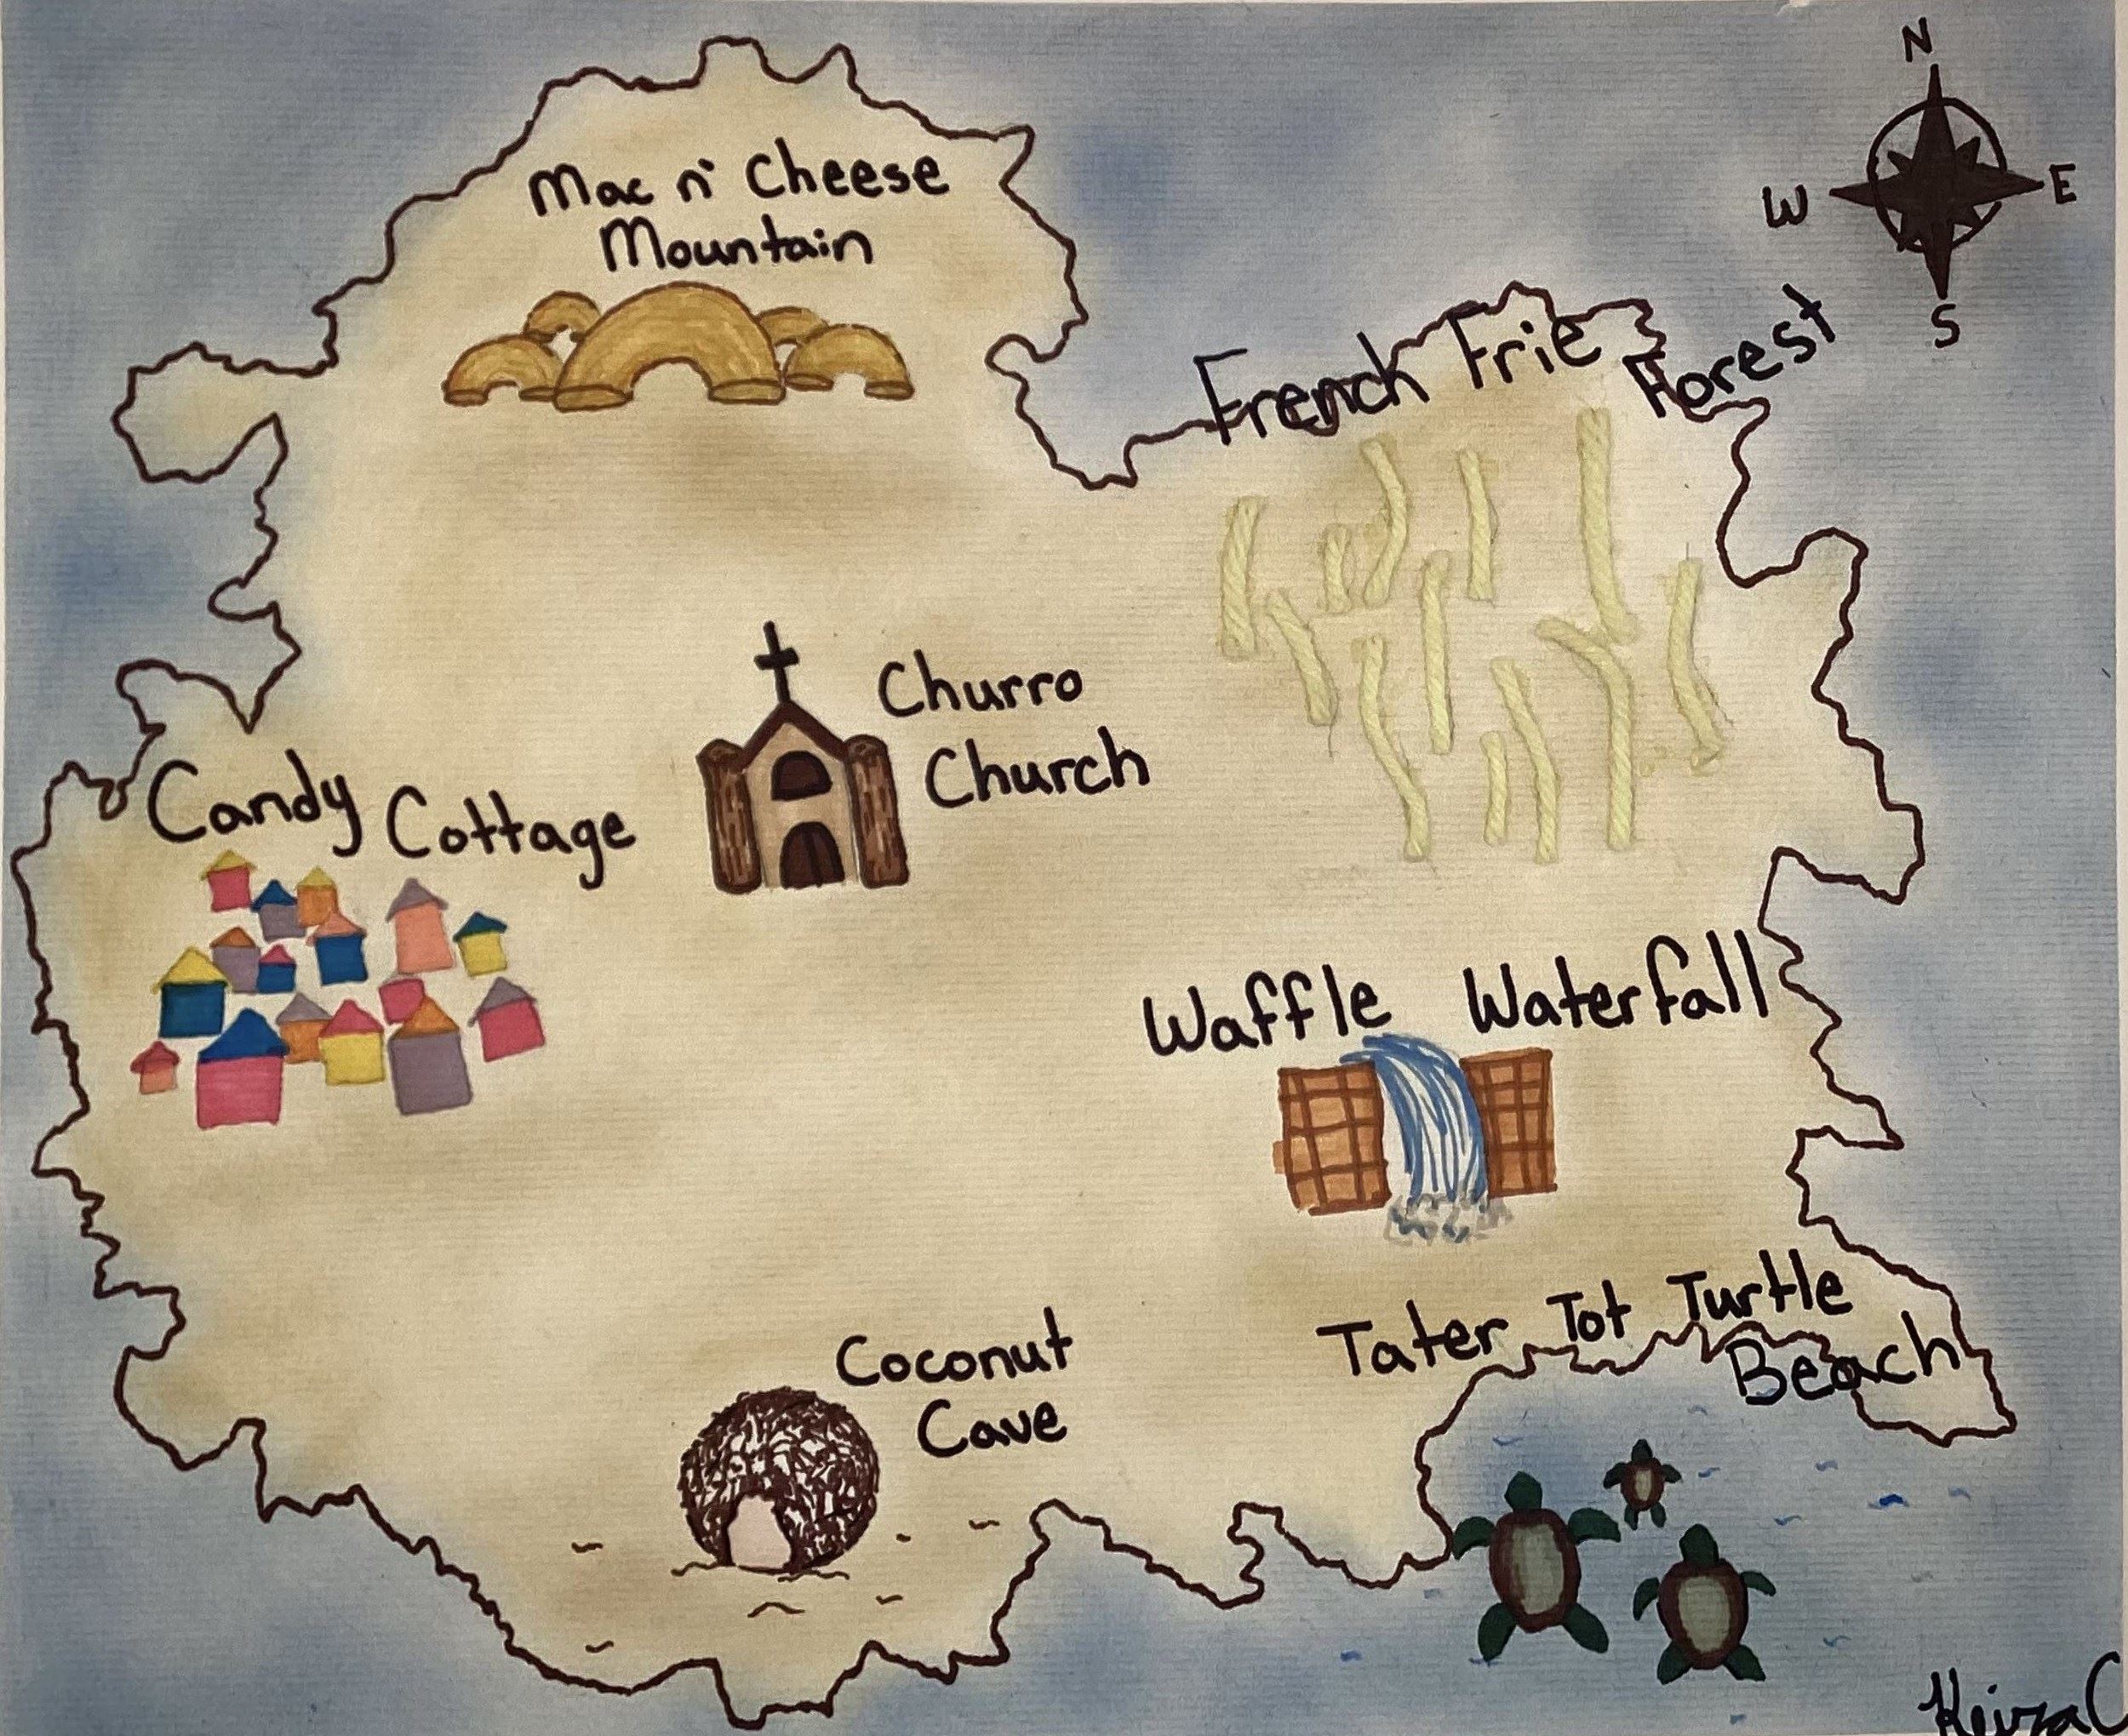 N
W E
S
Mac n' Cheese
Mountain
French Frie Forest
Churro
Church
Candy Cottage
Waffle Waterfall
Tater Tot Turtle
Beach
Coconut
Cave